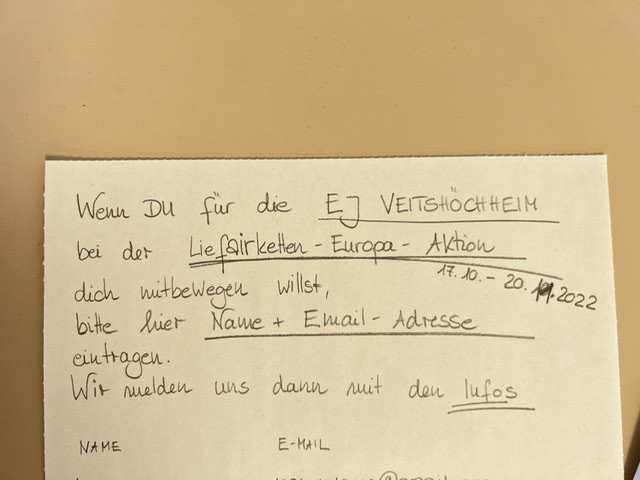 Wenn DU für die EJ VEITSHÖCHHEIM
bei der Liefairketten-Europa-Aktion
17.10.-20.11.2022
dich mitbewegen willst,
bitte hier Name + Email-Adresse
eintragen.
Wir melden uns dann mit den Infos
NAME E-MAIL